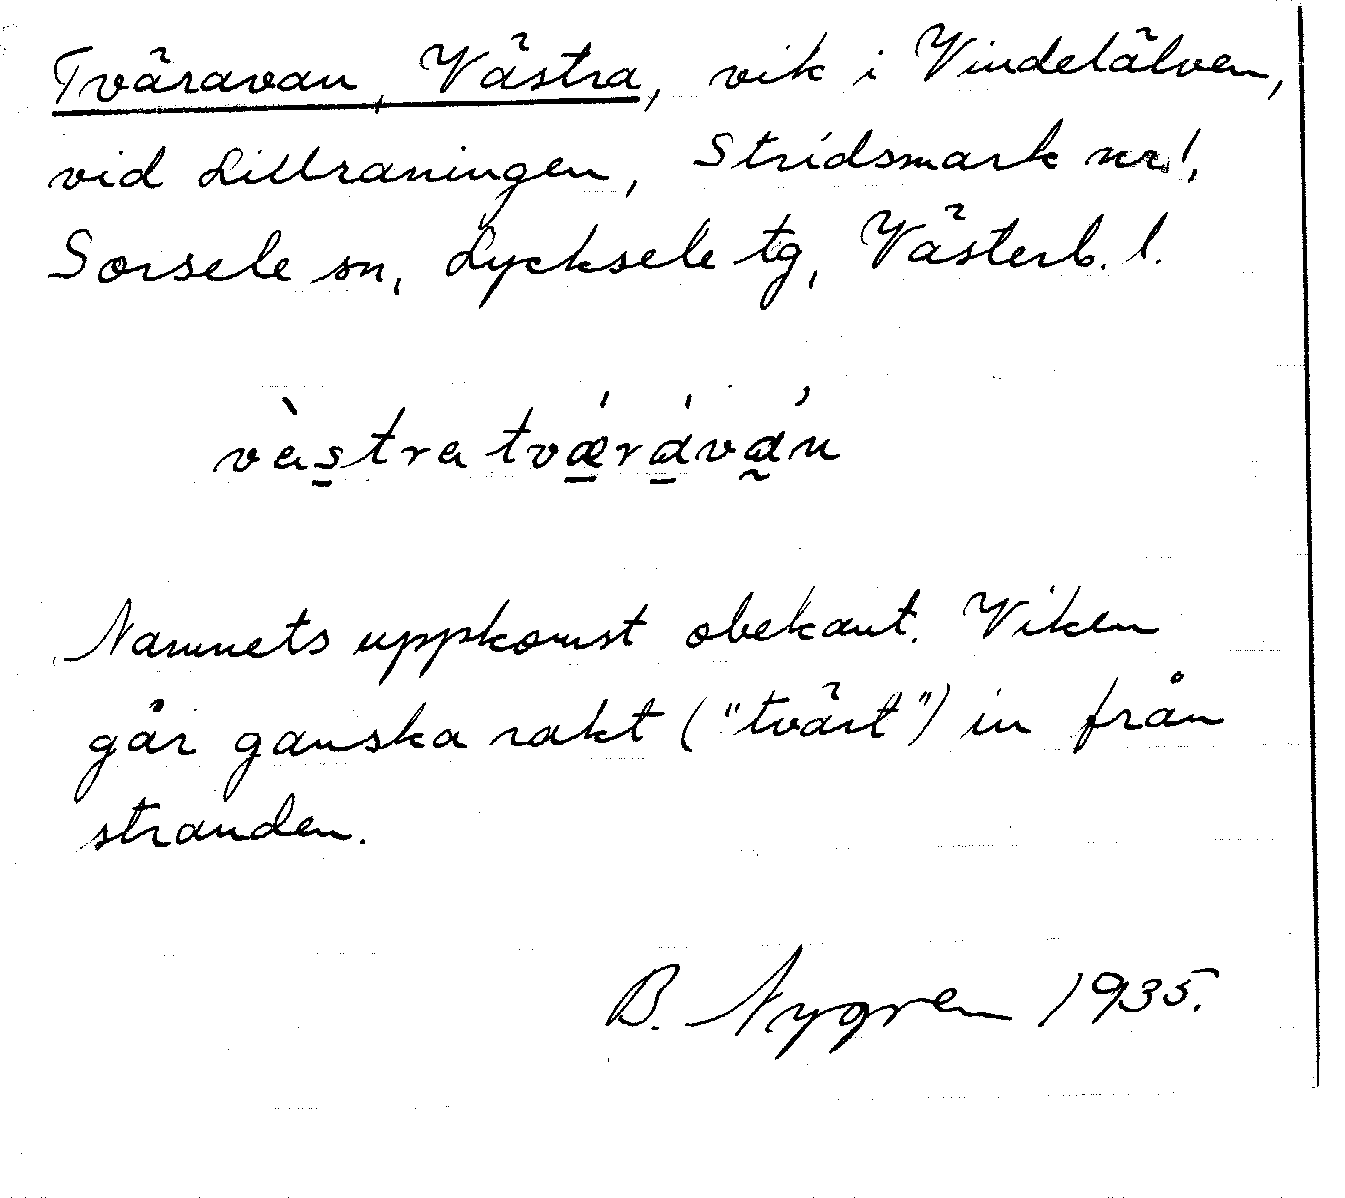 Tväravan, Västra, vik i Vindelälven,
vid Lillraningen, Stridsmark nr 1,
Sorsele sn, Lycksele tg, Västerb. l.
vàs̱tra tvǽ̱rá̱vá̰n
Namnets uppkomst obekant. Viken
går ganska rakt ("tvärt") in från
stranden.
B. Nygren 1935.